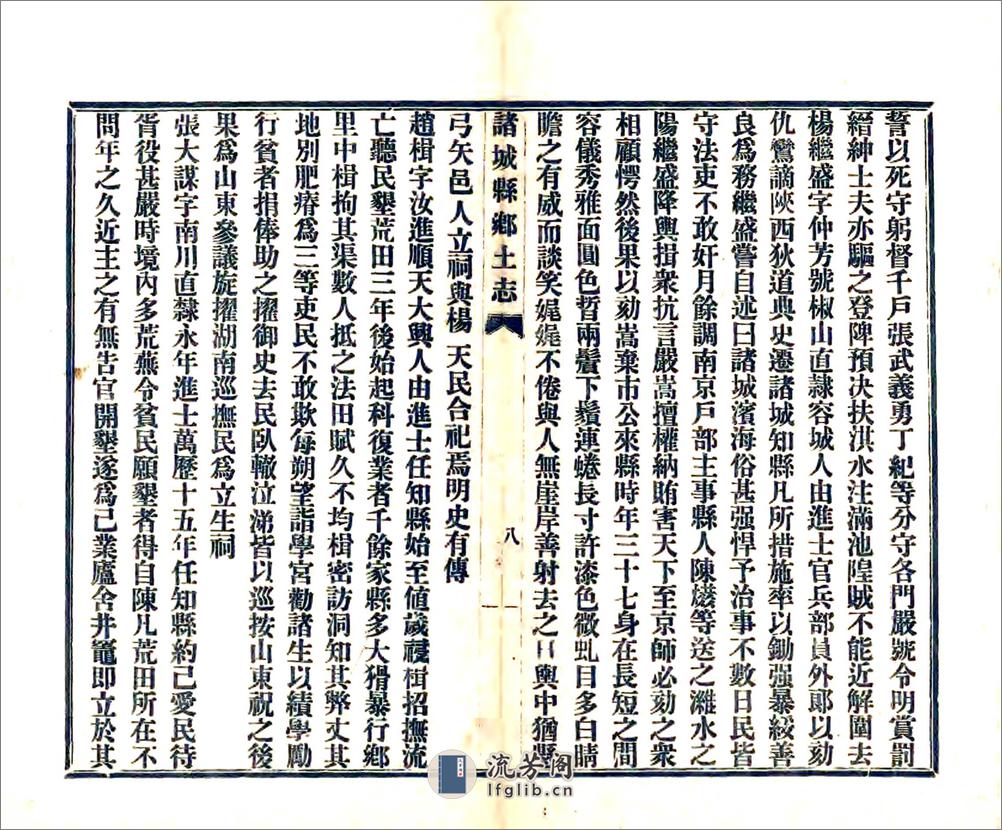 誓以死守躬督千戶張武義勇丁紀等分守各門嚴號令明賞罰
縉紳士夫亦驅之登陴預决扶淇水注滿池隍賊不能近解圍去
楊繼盛字仲芳號椒山直隷容城人由進士官兵部員外郞以劾
仇鸞謫陝西狄道典史遷諸城知縣凡所措施率以鋤强暴綏善
良爲務繼盛嘗自述曰諸城濱海俗甚强悍予治事不數日民皆
守法吏不敢奸月餘調南京戶部主事縣人陳爊等送之濰水之
陽繼盛降輿揖衆抗言嚴嵩擅權納賄害天下至京師必劾之衆
相顧愕然後果以劾嵩棄市公來縣時年三十七身在長短之間
容儀秀雅面圓色晳兩鬢下鬚連蜷長寸許漆色微虬目多白睛
瞻之有威而談笑娓娓不倦與人無崖岸善射去之日輿中猶懸
諸城縣鄕土志
八
弓矢邑人立祠與楊天民合祀焉明史有傳
趙楫字汝進順天大興人由進士任知縣始至値歲祲楫招撫流
亡聽民墾荒田三年後始起科復業者千餘家縣多大猾暴行鄕
里中楫拘其渠數人抵之法田賦久不均楫密訪洞知其弊丈其
地別肥瘠爲三等吏民不敢欺每朔望詣學宮勸諸生以績學勵
行貧者捐俸助之擢御史去民臥轍泣涕皆以巡按山東祝之後
果爲山東參議旋擢湖南巡撫民爲立生祠
張大謀字南川直隸永年進士萬歷十五年任知縣約己愛民待
胥役甚嚴時境內多荒蕪令貧民願墾者得自陳凡荒田所在不
問年之久近主之有無告官開墾遂爲己業廬舍井竈即立於其
流芳阁
lfglib.cn